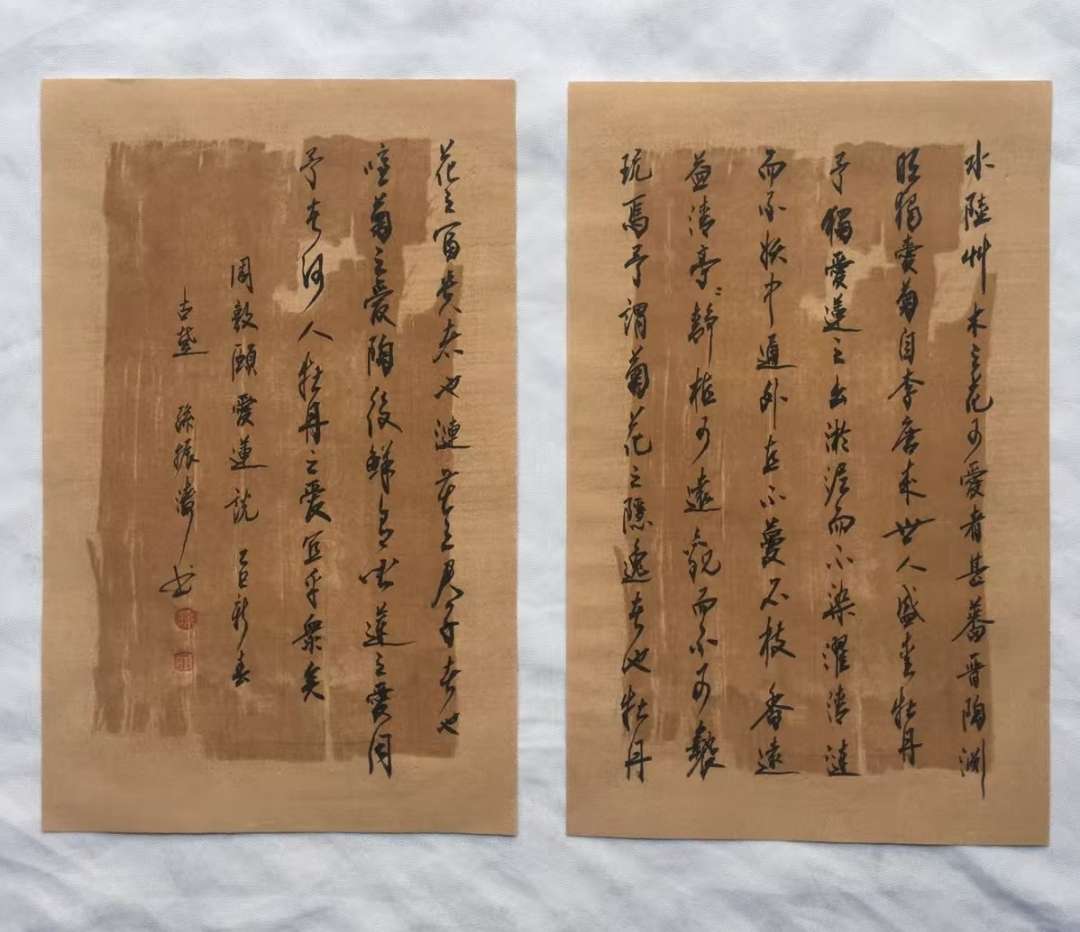 水陸艸木之花可愛者甚蕃晋陶渊
明獨愛菊自李唐来世人盛愛牡丹
予獨愛蓮之出淤泥而不染濯清漣
而不妖中通外直不蔓不枝香遠
益清亭〻静植可遠觀而不可褻
玩焉予謂菊花之隱逸者也牡丹
花之富貴者也漣花之君子者也
噫菊之愛陶後鮮有聞蓮之愛同
予者何人牡丹之愛宜乎衆矣
周敦頤愛蓮説 乙巳新春
古 孫振濤书